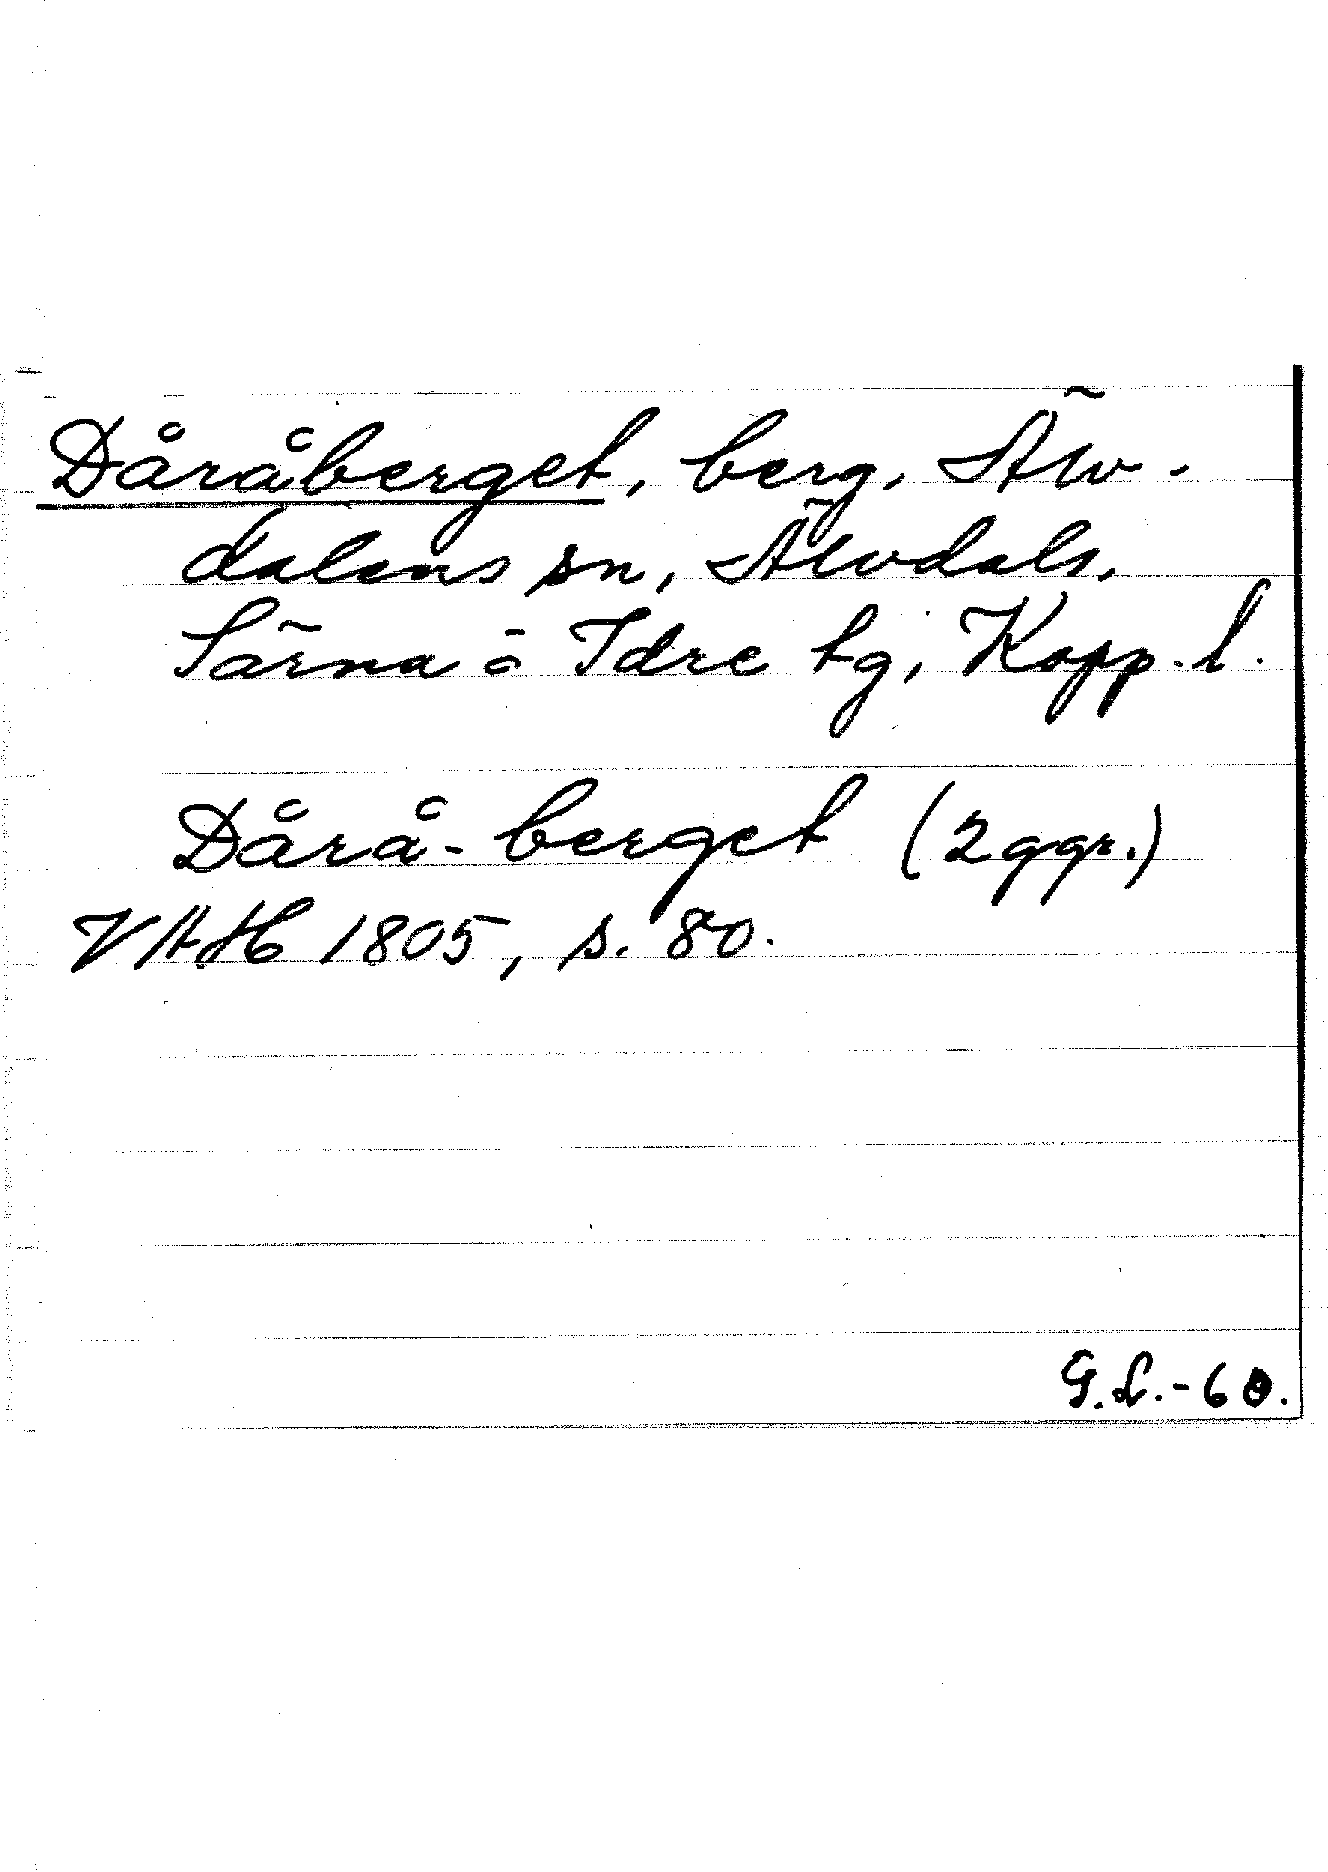 Dåråberget, berg, Älv-
dalens sn, Älvdals,
Särna o Idre tg, Kopp. l.
Dårå-berget (2 ggr.)
VAH 1805, s. 80.
G.L.-60.